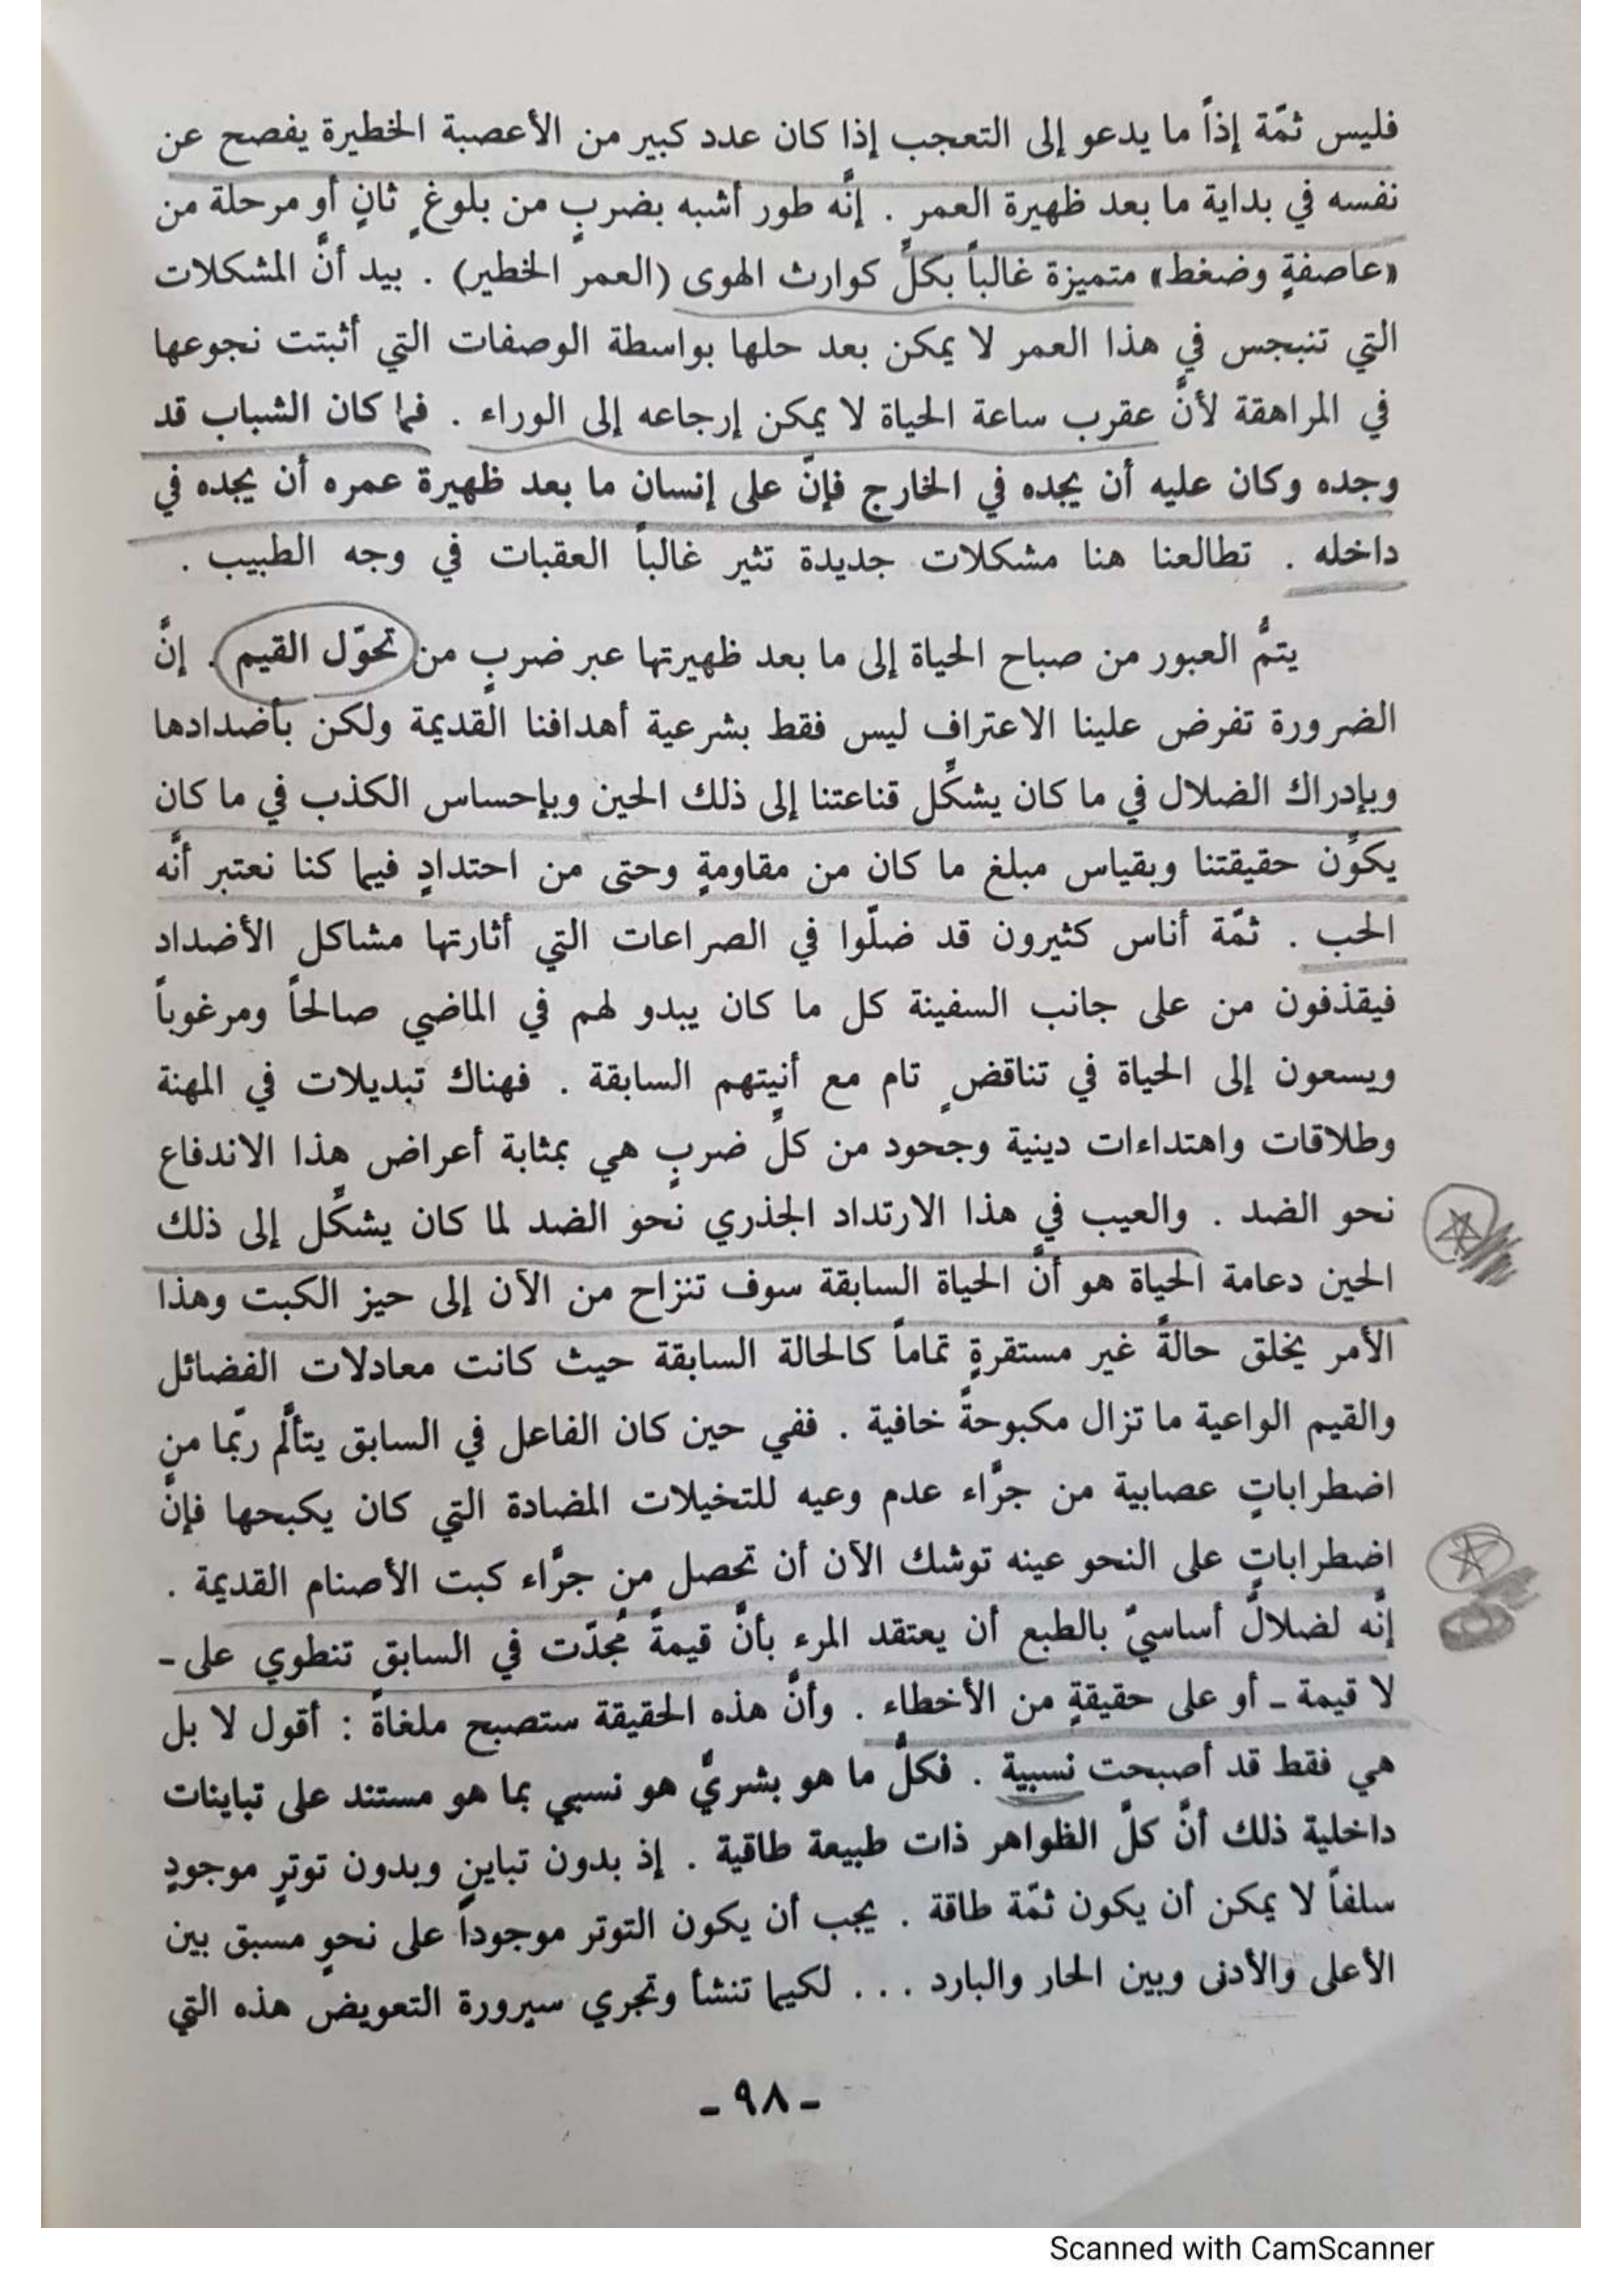 فليس ثمّة إذاً ما يدعو إلى التعجب إذا كان عدد كبير من الأعصبة الخطيرة يفصح عن
نفسه في بداية ما بعد ظهيرة العمر . إنَّه طور أشبه بضربٍ من بلوغٍ ثانٍ أو مرحلة من
«عاصفةٍ وضغط» متميزة غالباً بكلِّ كوارث الهوى (العمر الخطير) . بيد أنَّ المشكلات
التي تنبجس في هذا العمر لا يمكن بعد حلها بواسطة الوصفات التي أثبتت نجوعها
في المراهقة لأنَّ عقرب ساعة الحياة لا يمكن إرجاعه إلى الوراء . فما كان الشباب قد
وجده وكان عليه أن يجده في الخارج فإنَّ على إنسان ما بعد ظهيرة عمره أن يجده في
داخله . تطالعنا هنا مشكلات جديدة تثير غالباً العقبات في وجه الطبيب .
يتمُّ العبور من صباح الحياة إلى ما بعد ظهيرتها عبر ضربٍ من تحوّل القيم . إنَّ
الضرورة تفرض علينا الاعتراف ليس فقط بشرعية أهدافنا القديمة ولكن بأضدادها
وبإدراك الضلال في ما كان يشكِّل قناعتنا إلى ذلك الحين وبإحساس الكذب في ما كان
يكوِّن حقيقتنا وبقياس مبلغ ما كان من مقاومةٍ وحتى من احتدادٍ فيما كنا نعتبر أنَّه
الحب . ثمّة أناس كثيرون قد ضلّوا في الصراعات التي أثارتها مشاكل الأضداد
فيقذفون من على جانب السفينة كل ما كان يبدو لهم في الماضي صالحاً ومرغوباً
ويسعون إلى الحياة في تناقضٍ تام مع أنيتهم السابقة . فهناك تبديلات في المهنة
وطلاقات واهتداءات دينية وجحود من كلِّ ضربٍ هي بمثابة أعراض هذا الاندفاع
نحو الضد . والعيب في هذا الارتداد الجذري نحو الضد لما كان يشكِّل إلى ذلك
الحين دعامة الحياة هو أنَّ الحياة السابقة سوف تنزاح من الآن إلى حيز الكبت وهذا
الأمر يخلق حالةً غير مستقرةٍ تماماً كالحالة السابقة حيث كانت معادلات الفضائل
والقيم الواعية ما تزال مكبوحةً خافية . ففي حين كان الفاعل في السابق يتألَّم ربّما من
اضطراباتٍ عصابية من جرَّاء عدم وعيه للتخيلات المضادة التي كان يكبحها فإنَّ
اضطراباتٍ على النحو عينه توشك الآن أن تحصل من جرَّاء كبت الأصنام القديمة .
إنَّه لضلالٌ أساسيّ بالطبع أن يعتقد المرء بأنَّ قيمةً مُجدّت في السابق تنطوي على -
لا قيمة - أو على حقيقةٍ من الأخطاء . وأنَّ هذه الحقيقة ستصبح ملغاةً : أقول لا بل
هي فقط قد أصبحت نسبية . فكلُّ ما هو بشريٌّ هو نسبي بما هو مستند على تباينات
داخلية ذلك أنَّ كلَّ الظواهر ذات طبيعة طاقية . إذ بدون تباينٍ وبدون توترٍ موجودٍ
سلفاً لا يمكن أن يكون ثمّة طاقة . يجب أن يكون التوتر موجوداً على نحوٍ مسبق بين
الأعلى والأدنى وبين الحار والبارد ... لكيما تنشأ وتجري سيرورة التعويض هذه التي
- ٩٨ -
Scanned with CamScanner